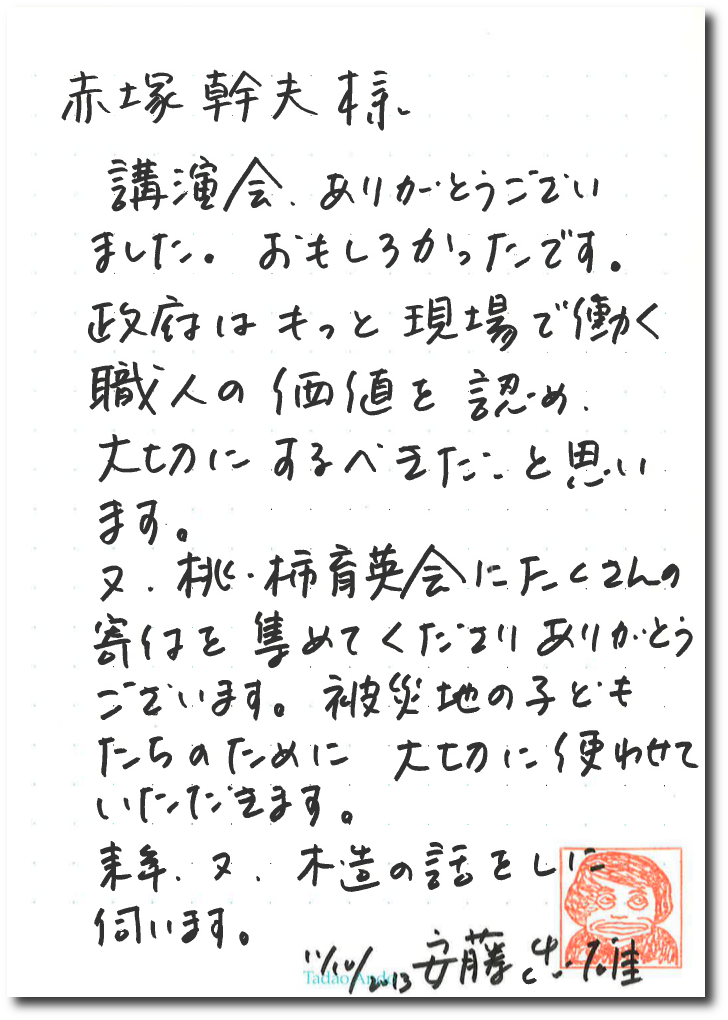 赤塚幹夫様
講演会、ありがとうござい
ました。おもしろかったです。
政府はもっと現場で働く
職人の価値を認め、
大切にするべきだと思い
ます。
又、桃・柿育英会にたくさんの
寄付を集めてくださりありがとう
ございます。被災地の子ども
たちのために 大切に使わせて
いただきます。
来年、又、木造の話をしに
伺います。
11/10/2013 安藤忠雄
Tadao Ando